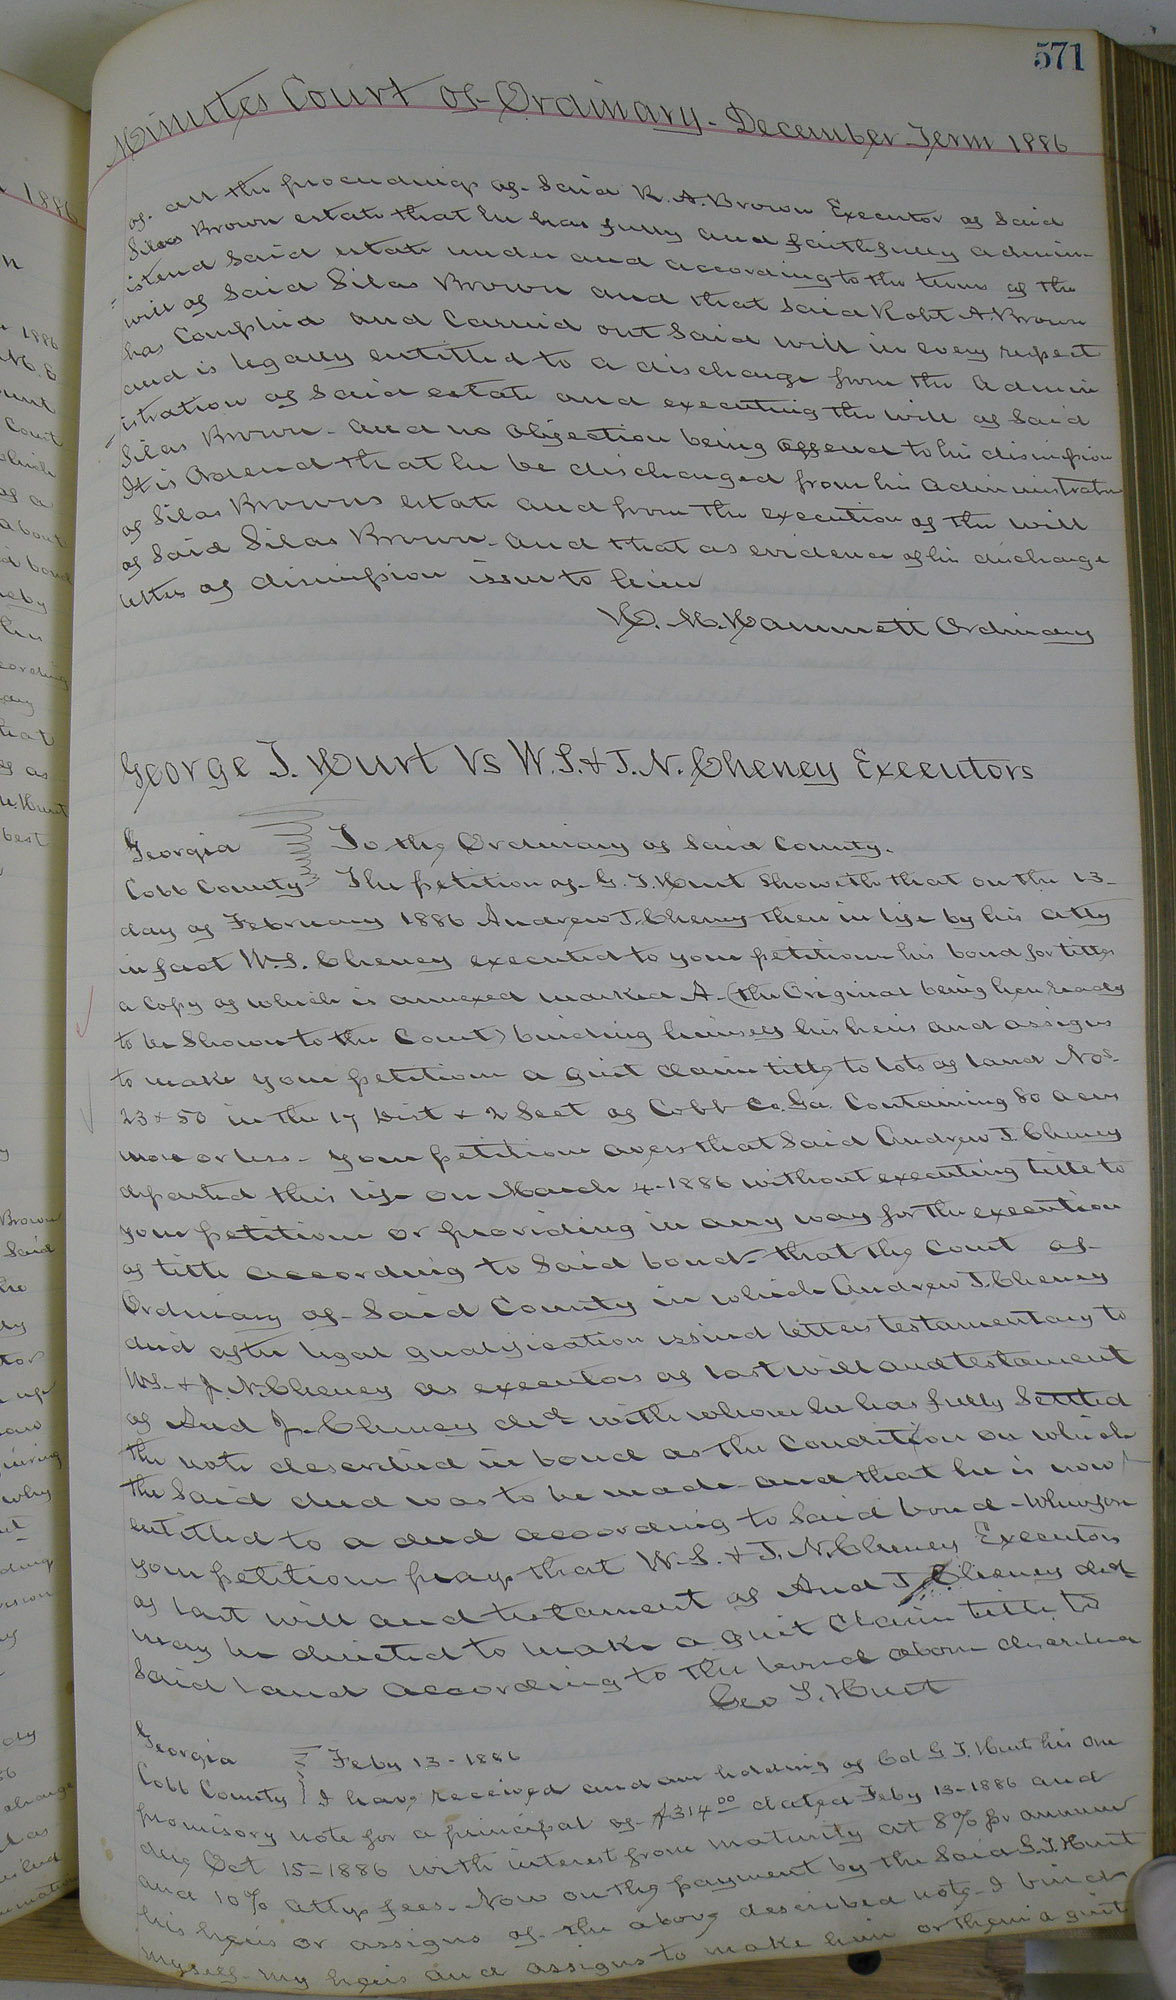 571
Minutes Court of Ordinary - December Term 1886
of all the proceedings of Said R. A. Brown Executor of Said
Silas Brown estate that he has fully and faithfully admin-
istered Said estate under and according to the terms of the
will of Said Silas Brown and that Said Robt A. Brown
has Complied and Carried out Said will in every respect
and is legally entitled to a discharge from the Admin
istration of Said estate and executing the will of Said
Silas Brown - and no objection being offered to his dismission
It is Ordered that he be discharged from his Administration
of Silas Browns estate and from the execution of the will
of Said Silas Brown - and that as evidence of his discharge
letters of dismission issue to him
H. M. Hammett Ordinary
George T. Hurt Vs W. S. & J. N. Cheney Executors
Georgia } To the Ordinary of Said County.
Cobb County } The petition of G. T. Hurt Showeth that on the 13-
day of February 1886 Andrew J. Cheney then in life by his atty
in fact W. S. Cheney executed to your petitioner his bond for titles
a Copy of which is annexed marked A - (the Original being here ready
to be Shown to the Court) binding himself his heirs and assigns
to make your petitioner a quit claim title to lots of land Nos.
23 & 50 in the 17 Dist & 2 Sect of Cobb Co. Ga. Containing 80 acres
more or less - your petitioner avers that Said Andrew J. Cheney
departed this life on March 4 - 1886 without executing title to
your petitioner or providing in any way for the execution
of title according to Said bond - that the Court of
Ordinary of Said County in which Andrew J. Cheney
died after legal qualification issued letters testamentary to
W. S. & J. N. Cheney as executors of last will and testament
of And J. Cheney decd with whom he has fully Settled
the note described in bond as the Condition on which
the Said deed was to be made and that he is now
entitled to a deed according to Said bond - Wherefore
your petitioner prays that W. S. & J. N. Cheney Executors
of last will and testament of And J. Cheney decd
may be directed to make a quit Claim title to
Said land according to the bond above described
Geo T. Hurt
Georgia } Feby 13 - 1886
Cobb County } I have received and am holding of Col G T. Hurt his one
promisory note for a principal of $314.00 dated Feby 13 - 1886 and
due Oct 15 - 1886 with interest from maturity at 8% pr annum
and 10% attys fees. Now on the payment by the Said G. T. Hurt
his heirs or assigns of the above described note - I bind
myself - my heirs and assigns to make him or them a quit